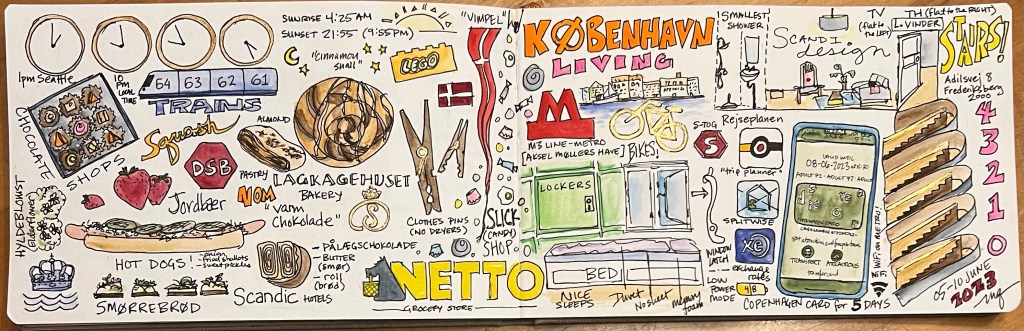 SUNRISE 4:25AM
SUNSET 21:55 (9:55PM)
1pm Seattle
10 PM LOCAL TIME
64 63 62 61
TRAINS
CHOCOLATE
SHOPS
Squash
ALMOND
PASTRY
DSB
"cinnamon snail"
LEGO
LAGKAGEHUSET
BAKERY
MOM
"varm
chokolade"
Jordbær
HYLDEBLOMST
(elderflower)
HOT DOGS!
- onion
- fried shallots
- sweet pickles
SMØRREBRØD
Scandic HOTELS
- PÅLÆGSCHOKOLADE
- BUTTER
(smør)
- roll
(brød)
CLOTHES PINS
(NO DRYERS)
"VIMPEL"
SLICK
(CANDY)
SHOP
NETTO
GROCERY STORE
KØBENHAVN
LIVING
M
M3 LINE-METRO
[AKSEL MØLLERS HAVE]
BIKES!
LOCKERS
WINDOW
LATCH
BED
NICE
SLEEPS
Duvet
No sheet
memory
foam
SMALLEST
SHOWER
SCANDI
design
TV
(flat to
the LEFT)
TH (flat to the RIGHT)
L. VINDER
S-TOG
S
Rejseplanen
"trip planner"
SPLITWISE
XE
exchange
rates
LOW
POWER
MODE
48
VALID UNTIL
08-06-2023
TRANSPORT
ATTRACTIONS
COPENHAGEN CARD for 5 DAYS
WiFi ON METRO!
WiFi
STAIRS!
Adilsvej 8
Frederiksberg
2000
4
3
2
1
0
05-10 JUNE
2023